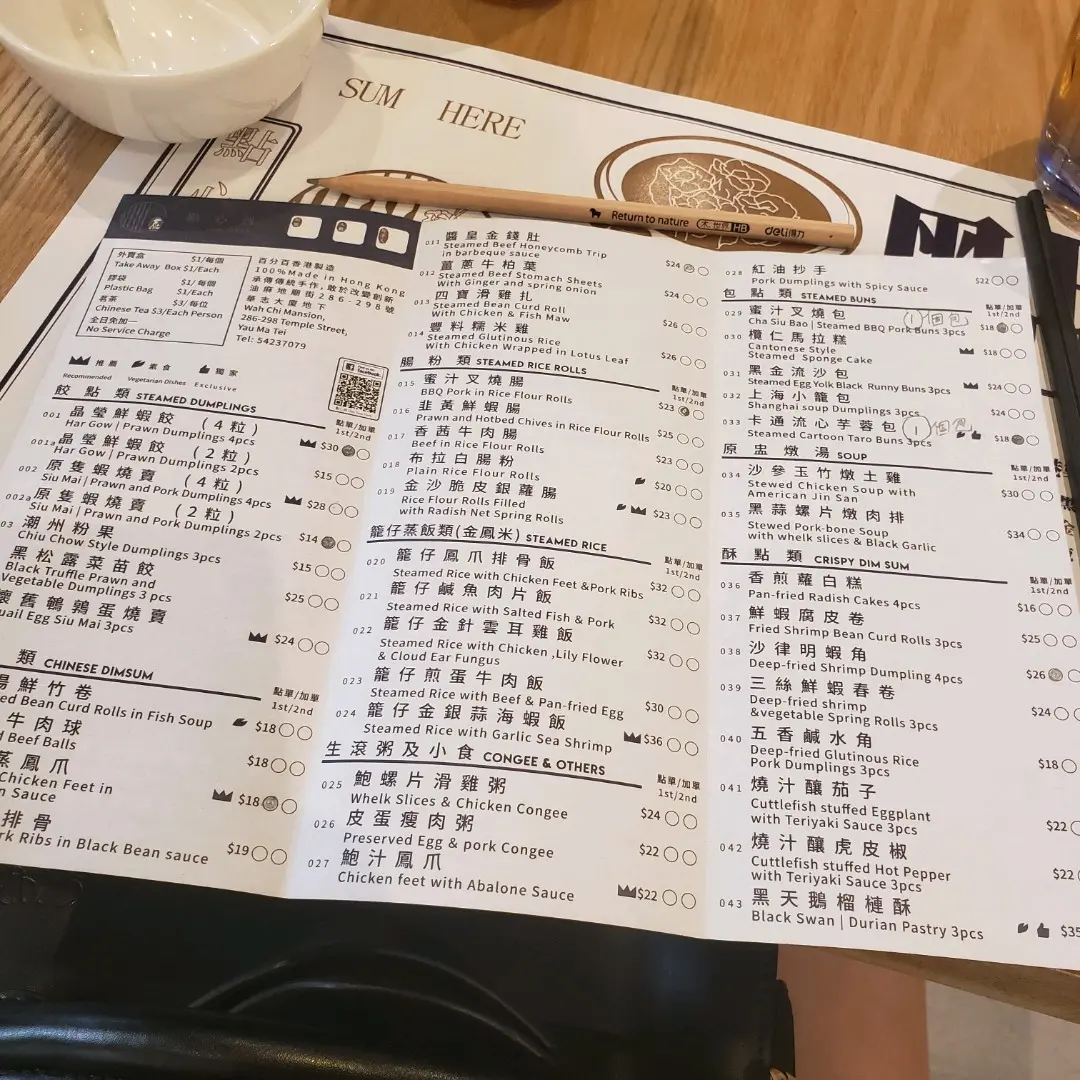 SUM HERE
點
Return to nature
HB
deli得力
外賣盒 $1/每個
Take Away Box $1/Each
膠袋 $1/每個
Plastic Bag $1/Each
茗茶 $3/每位
Chinese Tea $3/Each Person
全日免加一
No Service Charge
百分百香港製造
100% Made in Hong Kong
承傳傳統手作,敢於改變創新
油麻地廟街286-298號
華志大廈地下
Wah Chi Mansion,
286-298 Temple Street,
Yau Ma Tei
Tel: 54237079
推薦 素食 獨家
Recommended Vegetarian Dishes Exclusive
facebook
餃點類 STEAMED DUMPLINGS
點單/加單
1st/2nd
001 晶瑩鮮蝦餃 (4粒)
Har Gow | Prawn Dumplings 4pcs $30
001a 晶瑩鮮蝦餃 (2粒)
Har Gow | Prawn Dumplings 2pcs $15
002 原隻蝦燒賣 (4粒)
Siu Mai | Prawn and Pork Dumplings 4pcs $28
002a 原隻蝦燒賣 (2粒)
Siu Mai | Prawn and Pork Dumplings 2pcs $14
03 潮州粉果
Chiu Chow Style Dumplings 3pcs $15
黑松露菜苗餃
Black Truffle Prawn and
Vegetable Dumplings 3 pcs $25
懷舊鵪鶉蛋燒賣
uail Egg Siu Mai 3pcs $24
類 CHINESE DIMSUM
點單/加單
1st/2nd
湯鮮竹卷
ed Bean Curd Rolls in Fish Soup $18
牛肉球
d Beef Balls $18
蒸鳳爪
Chicken Feet in
n Sauce $18
排骨
rk Ribs in Black Bean sauce $19
011 醬皇金錢肚
Steamed Beef Honeycomb Trip
in barbeque sauce $24
012 薑蔥牛柏葉
Steamed Beef Stomach Sheets
With Ginger and spring onion $24
013 四寶滑雞扎
Steamed Bean Curd Roll
With Chicken & Fish Maw $26
014 豐料糯米雞
Steamed Glutinous Rice
With Chicken Wrapped in Lotus Leaf $26
腸粉類 STEAMED RICE ROLLS
點單/加單
1st/2nd
015 蜜汁叉燒腸
BBQ Pork in Rice Flour Rolls $23
016 韭黃鮮蝦腸
Prawn and Hotbed Chives in Rice Flour Rolls $25
017 香茜牛肉腸
Beef in Rice Flour Rolls $23
018 布拉白腸粉
Plain Rice Flour Rolls $20
019 金沙脆皮銀蘿腸
Rice Flour Rolls Filled
with Radish Net Spring Rolls $23
籠仔蒸飯類(金鳳米) STEAMED RICE
點單/加單
1st/2nd
020 籠仔鳳爪排骨飯
Steamed Rice with Chicken Feet &Pork Ribs $32
021 籠仔鹹魚肉片飯
Steamed Rice with Salted Fish & Pork $32
022 籠仔金針雲耳雞飯
Steamed Rice with Chicken ,Lily Flower
& Cloud Ear Fungus $32
023 籠仔煎蛋牛肉飯
Steamed Rice with Beef & Pan-fried Egg $30
024 籠仔金銀蒜海蝦飯
Steamed Rice with Garlic Sea Shrimp $36
生滾粥及小食 CONGEE & OTHERS
點單/加單
1st/2nd
025 鮑螺片滑雞粥
Whelk Slices & Chicken Congee $24
026 皮蛋瘦肉粥
Preserved Egg & pork Congee $22
027 鮑汁鳳爪
Chicken feet with Abalone Sauce $22
028 紅油抄手
Pork Dumplings with Spicy Sauce $22
包點類 STEAMED BUNS
點單/加單
1st/2nd
029 蜜汁叉燒包 1個包
Cha Siu Bao | Steamed BBQ Pork Buns 3pcs $18
030 欖仁馬拉糕
Cantonese Style
Steamed Sponge Cake $18
031 黑金流沙包
Steamed Egg Yolk Black Runny Buns 3pcs $24
032 上海小籠包
Shanghai soup Dumplings 3pcs $24
033 卡通流心芋蓉包 1個包
Steamed Cartoon Taro Buns 3pcs $18
原盅燉湯 SOUP
點單/加單
1st/2nd
034 沙參玉竹燉土雞
Stewed Chicken Soup with
American Jin San $30
035 黑蒜螺片燉肉排
Stewed Pork-bone Soup
with whelk slices & Black Garlic $34
酥點類 CRISPY DIM SUM
點單/加單
1st/2nd
036 香煎蘿白糕
Pan-fried Radish Cakes 4pcs $16
037 鮮蝦腐皮卷
Fried Shrimp Bean Curd Rolls 3pcs $25
038 沙律明蝦角
Deep-fried Shrimp Dumpling 4pcs $26
039 三絲鮮蝦春卷
Deep-fried shrimp
&vegetable Spring Rolls 3pcs $24
040 五香鹹水角
Deep-fried Glutinous Rice
Pork Dumplings 3pcs $18
041 燒汁釀茄子
Cuttlefish stuffed Eggplant
with Teriyaki Sauce 3pcs $22
042 燒汁釀虎皮椒
Cuttlefish stuffed Hot Pepper
with Teriyaki Sauce 3pcs $22
043 黑天鵝榴槤酥
Black Swan | Durian Pastry 3pcs $35